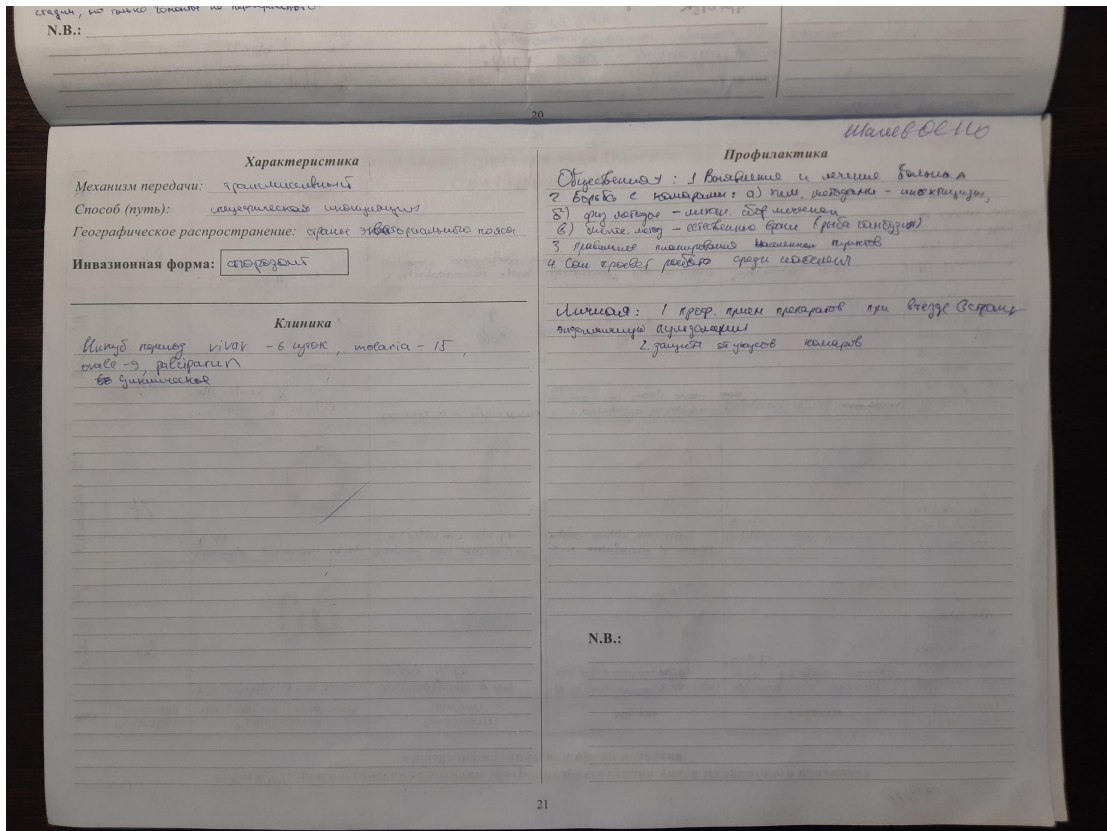 стадии, но только
N.B.:
20
Характеристика
Механизм передачи: трансмиссивный
Способ (путь): специфическая инокуляция
Географическое распространение: страны экваториального пояса
Инвазионная форма: спорозоит
Клиника
Инкуб период vivax - 6 суток, malaria - 15,
ovale - 9, falciparum
циклическое
Профилактика
Общественная: 1 Выявление и лечение больных
2. Борьба с комарами: а) хим. методами - инсектициды,
б) физ методы -
в) биолог. метод - естественно враги (рыба гамбузия)
3 Правильное планирование населенных пунктов
4. Сан просвет работа среди населения
Личная: 1 проф. прием препаратов при въезде в страну
эндемичную
2. защита от укусов комаров
N.B.:
21